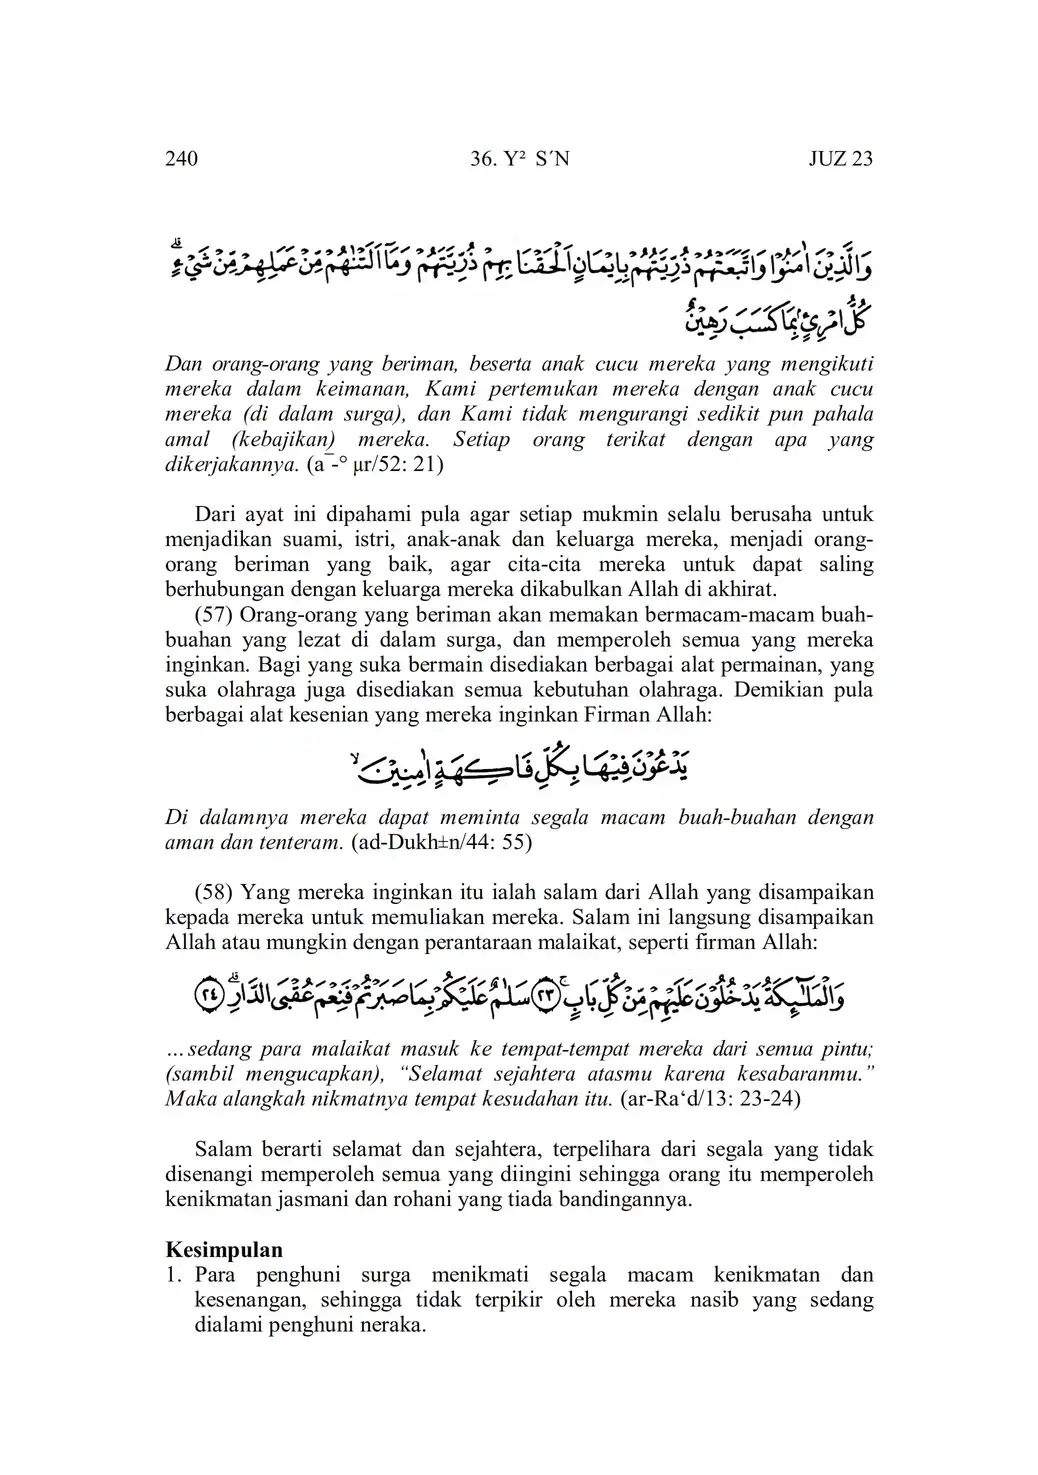 240 36. Y² S´N JUZ 23
وَالَّذِيْنَ اٰمَنُوْا وَاتَّبَعَتْهُمْ ذُرِّيَّتُهُمْ بِاِيْمَانٍ اَلْحَقْنَا بِهِمْ ذُرِّيَّتَهُمْ وَمَآ اَلَتْنٰهُمْ مِّنْ عَمَلِهِمْ مِّنْ شَيْءٍۗ
كُلُّ امْرِئٍۢ بِمَا كَسَبَ رَهِيْنٌ
Dan orang-orang yang beriman, beserta anak cucu mereka yang mengikuti
mereka dalam keimanan, Kami pertemukan mereka dengan anak cucu
mereka (di dalam surga), dan Kami tidak mengurangi sedikit pun pahala
amal (kebajikan) mereka. Setiap orang terikat dengan apa yang
dikerjakannya. (a¯-° µr/52: 21)
Dari ayat ini dipahami pula agar setiap mukmin selalu berusaha untuk
menjadikan suami, istri, anak-anak dan keluarga mereka, menjadi orang-
orang beriman yang baik, agar cita-cita mereka untuk dapat saling
berhubungan dengan keluarga mereka dikabulkan Allah di akhirat.
(57) Orang-orang yang beriman akan memakan bermacam-macam buah-
buahan yang lezat di dalam surga, dan memperoleh semua yang mereka
inginkan. Bagi yang suka bermain disediakan berbagai alat permainan, yang
suka olahraga juga disediakan semua kebutuhan olahraga. Demikian pula
berbagai alat kesenian yang mereka inginkan Firman Allah:
يَدْعُوْنَ فِيْهَا بِكُلِّ فَاكِهَةٍ اٰمِنِيْنَۙ
Di dalamnya mereka dapat meminta segala macam buah-buahan dengan
aman dan tenteram. (ad-Dukh±n/44: 55)
(58) Yang mereka inginkan itu ialah salam dari Allah yang disampaikan
kepada mereka untuk memuliakan mereka. Salam ini langsung disampaikan
Allah atau mungkin dengan perantaraan malaikat, seperti firman Allah:
وَالْمَلٰۤىِٕكَةُ يَدْخُلُوْنَ عَلَيْهِمْ مِّنْ كُلِّ بَابٍۚ ٢٣ سَلٰمٌ عَلَيْكُمْ بِمَا صَبَرْتُمْ فَنِعْمَ عُقْبَى الدَّارِۗ ٢٤
…sedang para malaikat masuk ke tempat-tempat mereka dari semua pintu;
(sambil mengucapkan), “Selamat sejahtera atasmu karena kesabaranmu.”
Maka alangkah nikmatnya tempat kesudahan itu. (ar-Ra‘d/13: 23-24)
Salam berarti selamat dan sejahtera, terpelihara dari segala yang tidak
disenangi memperoleh semua yang diingini sehingga orang itu memperoleh
kenikmatan jasmani dan rohani yang tiada bandingannya.
Kesimpulan
1. Para penghuni surga menikmati segala macam kenikmatan dan
kesenangan, sehingga tidak terpikir oleh mereka nasib yang sedang
dialami penghuni neraka.